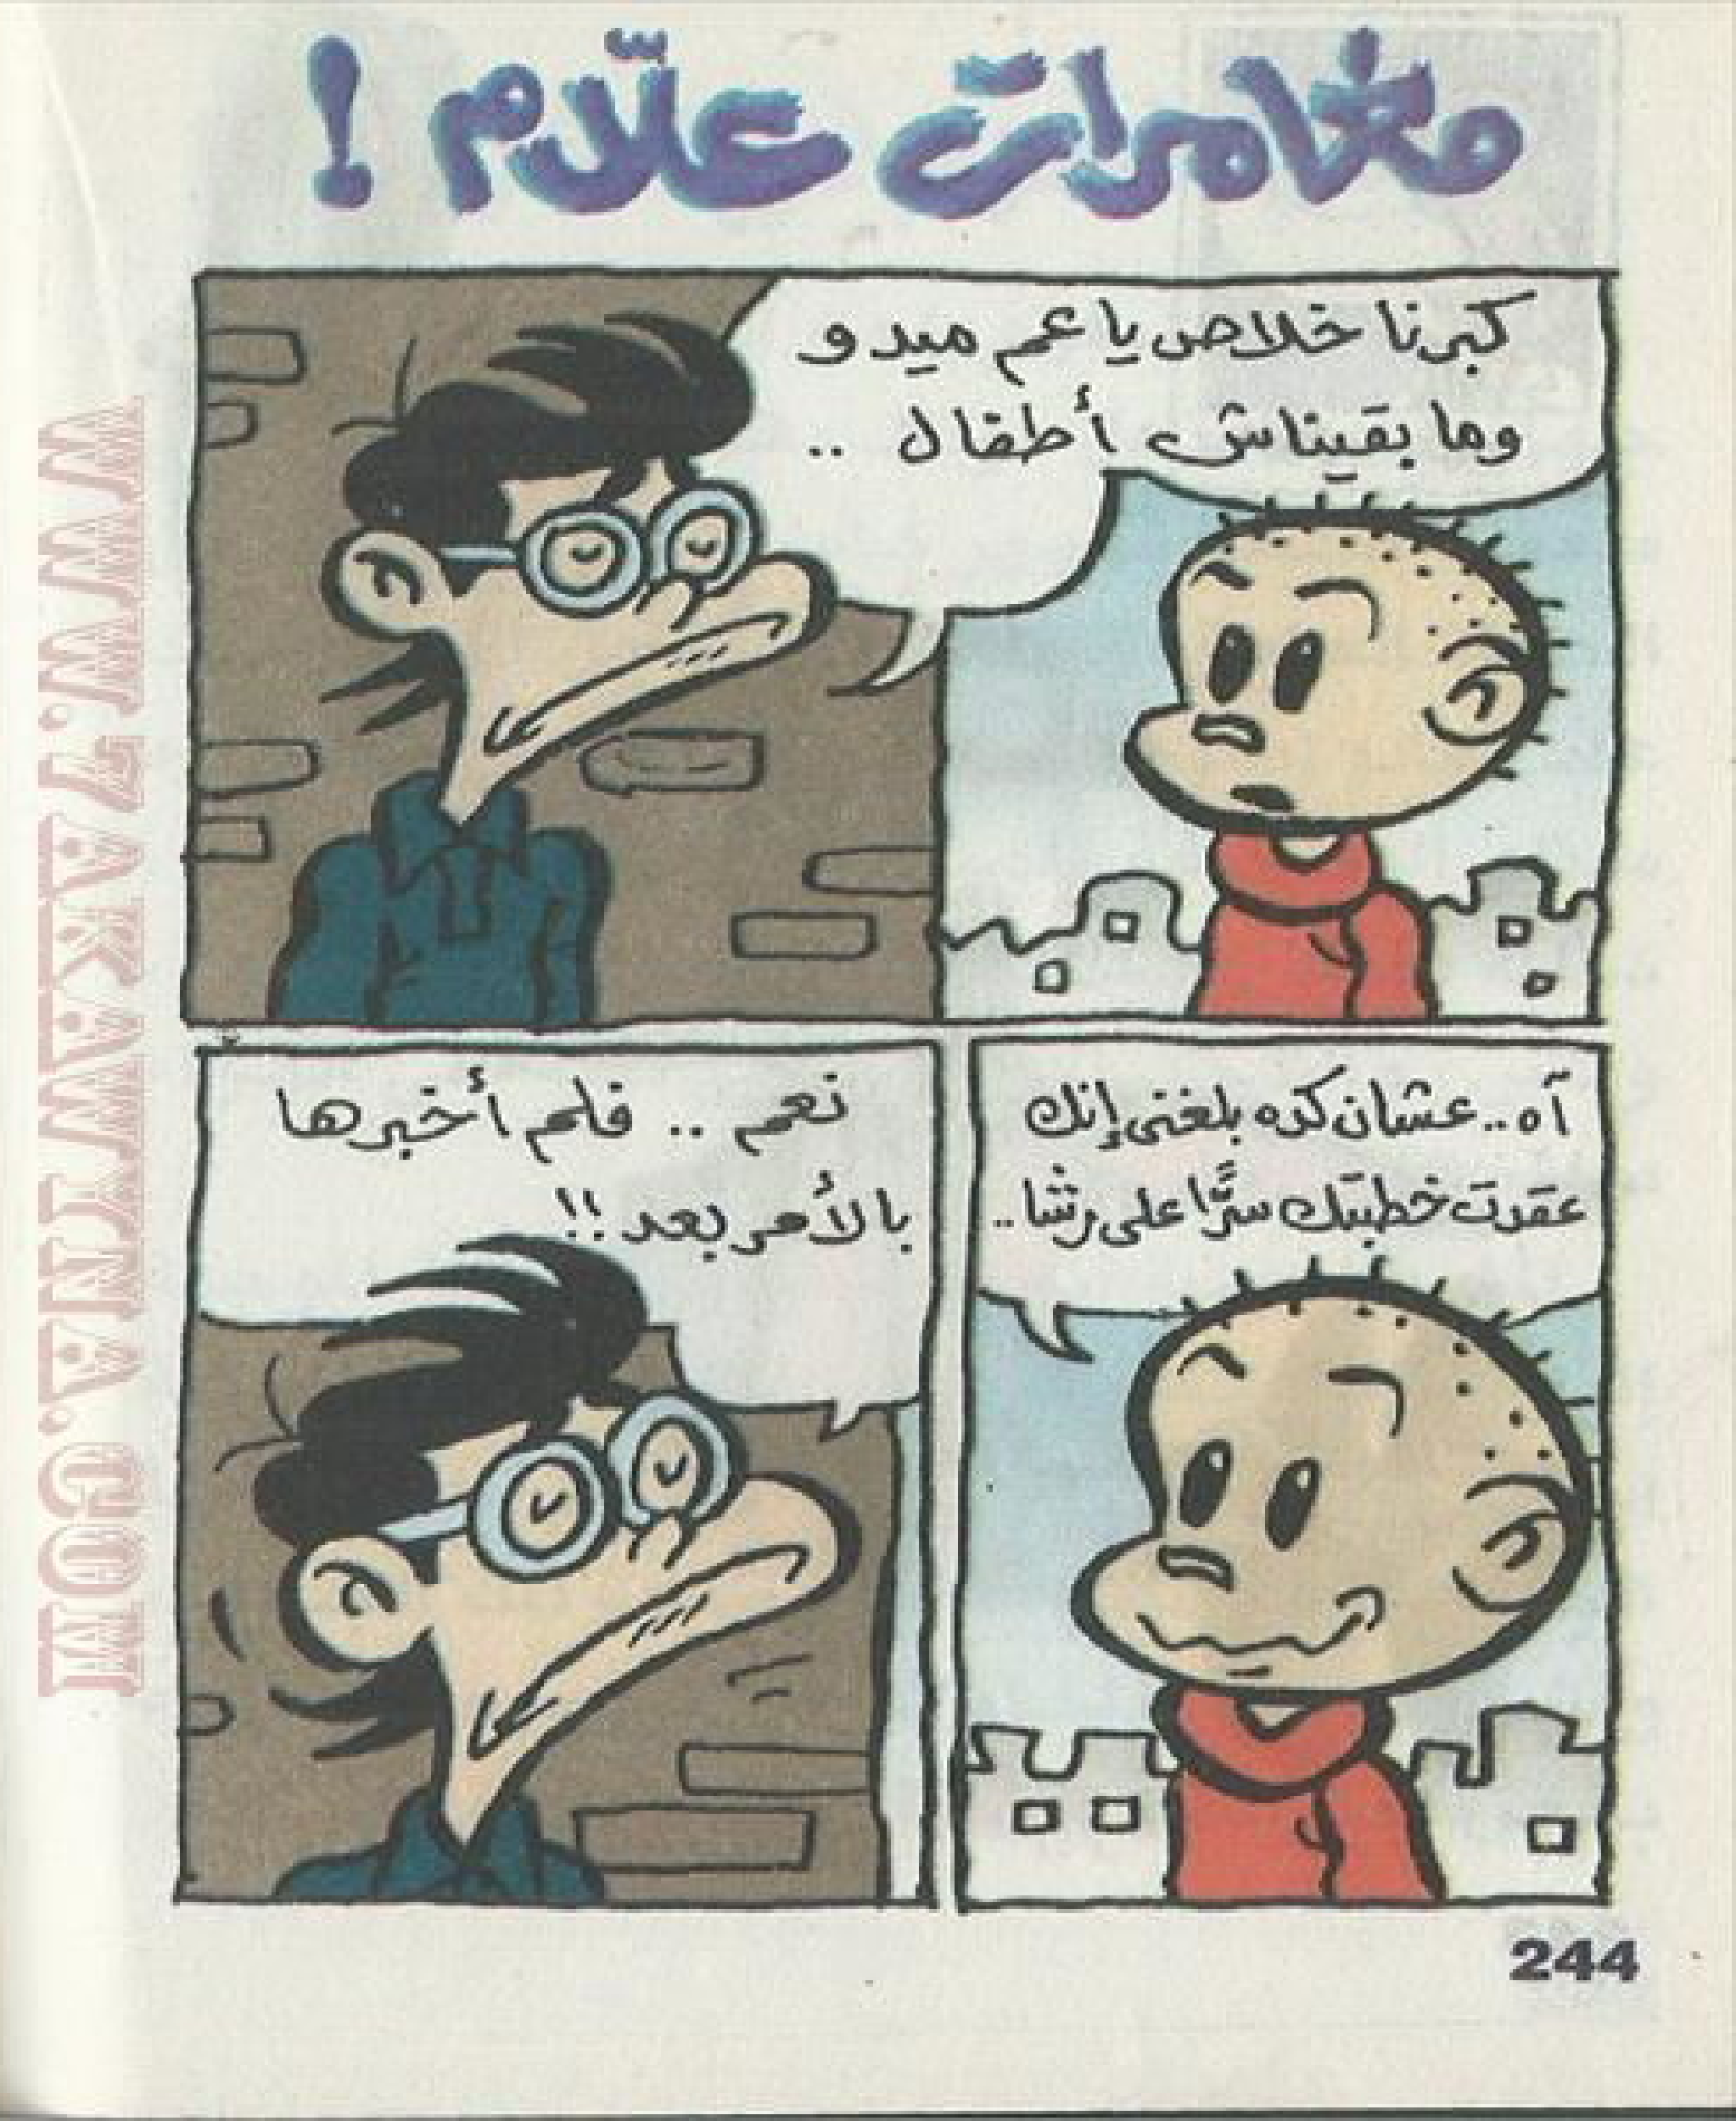 مغامرات علّام !
كبرنا خلاص يا عم ميدو
وما بقيناش أطفال ..
آه.. عشان كده بلغنى إنك
عقدت خطبتك سرًّا على رشا..
نعم .. فلم أخبرها
بالأمر بعد !!
244
WWW.TAKAWTNA.COM